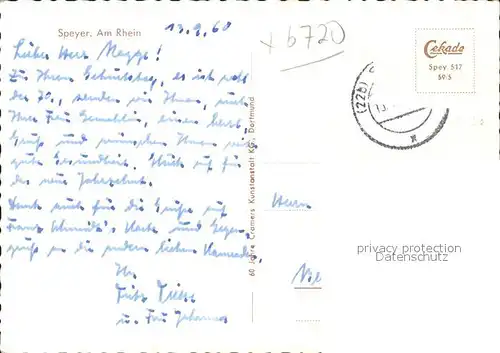 Speyer. Am Rhein
13.9.60
x b720
Cekade
Spey 517
59/5
(22b)
Lieber Herr Magge!
Zu Ihrem Geburtstag, es ist wohl
der 70., senden wir Ihnen, und
Ihrer Frau Gemahlin, einen herzl.
Gruß und wünschen Ihnen
gute Gesundheit. Glück auf für
das neue Jahrzehnt.
Dank auch für die Grüße auf
Franz Karte und Gegen-
grüße an die andern lieben Kameraden
Ihr
Fritz
u. Frau Johanna
60 Jahre Cramers Kunstanstalt KG., Dortmund
Herrn
privacy protection
Datenschutz